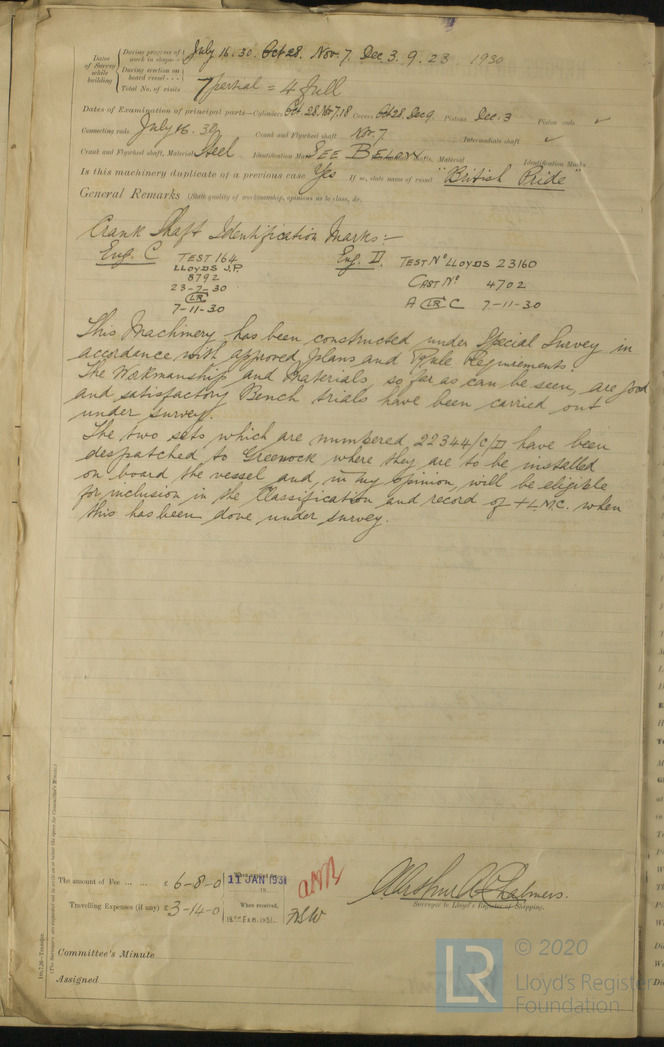 Dates of Survey while building
During progress of work in shops July 16. 30. Oct 28. Nov. 7. Dec 3. 9. 23. 1930
During erection on board vessel
Total No. of visits 7 partial = 4 full
Dates of Examination of principal parts—Cylinders Oct. 28. Nov 7. 18 Covers Oct 28. Dec 9. Pistons Dec. 3 Piston rods ✓
Connecting rods July 16. 30 Crank and Flywheel shaft Nov. 7 Intermediate shaft ✓
Crank and Flywheel shaft, Material Steel Identification Mark SEE BELOW Material Identification Marks
Is this machinery duplicate of a previous case Yes If so, state name of vessel "British Pride"
General Remarks (State quality of workmanship, opinions as to class, &c.
Crank Shaft Identification Marks:-
Eng. C TEST 164 Eng. D. TEST Nº LLOYDS 23160
LLOYDS J.P.
8792 CAST Nº 4702
23-7-30
LR A LR C 7-11-30
7-11-30
This Machinery has been constructed under Special Survey in
accordance with approved plans and Rule Requirements.
The Workmanship and Materials, so far as can be seen, are good
and satisfactory Bench trials have been carried out
under survey.
The two sets which are numbered 22344/C/D have been
despatched to Greenock where they are to be installed
on board the vessel and, in my opinion, will be eligible
for inclusion in the Classification and record of + L.M.C. when
this has been done under survey.
The amount of Fee ... ... £ 6-8-0 11 JAN 1931
Travelling Expenses (if any) £ 3-14-0 When received,
Arthur A Chalmers.
Surveyor to Lloyd's Register of Shipping.
Committee's Minute
Assigned
LR © 2020
Lloyd's Register
Foundation